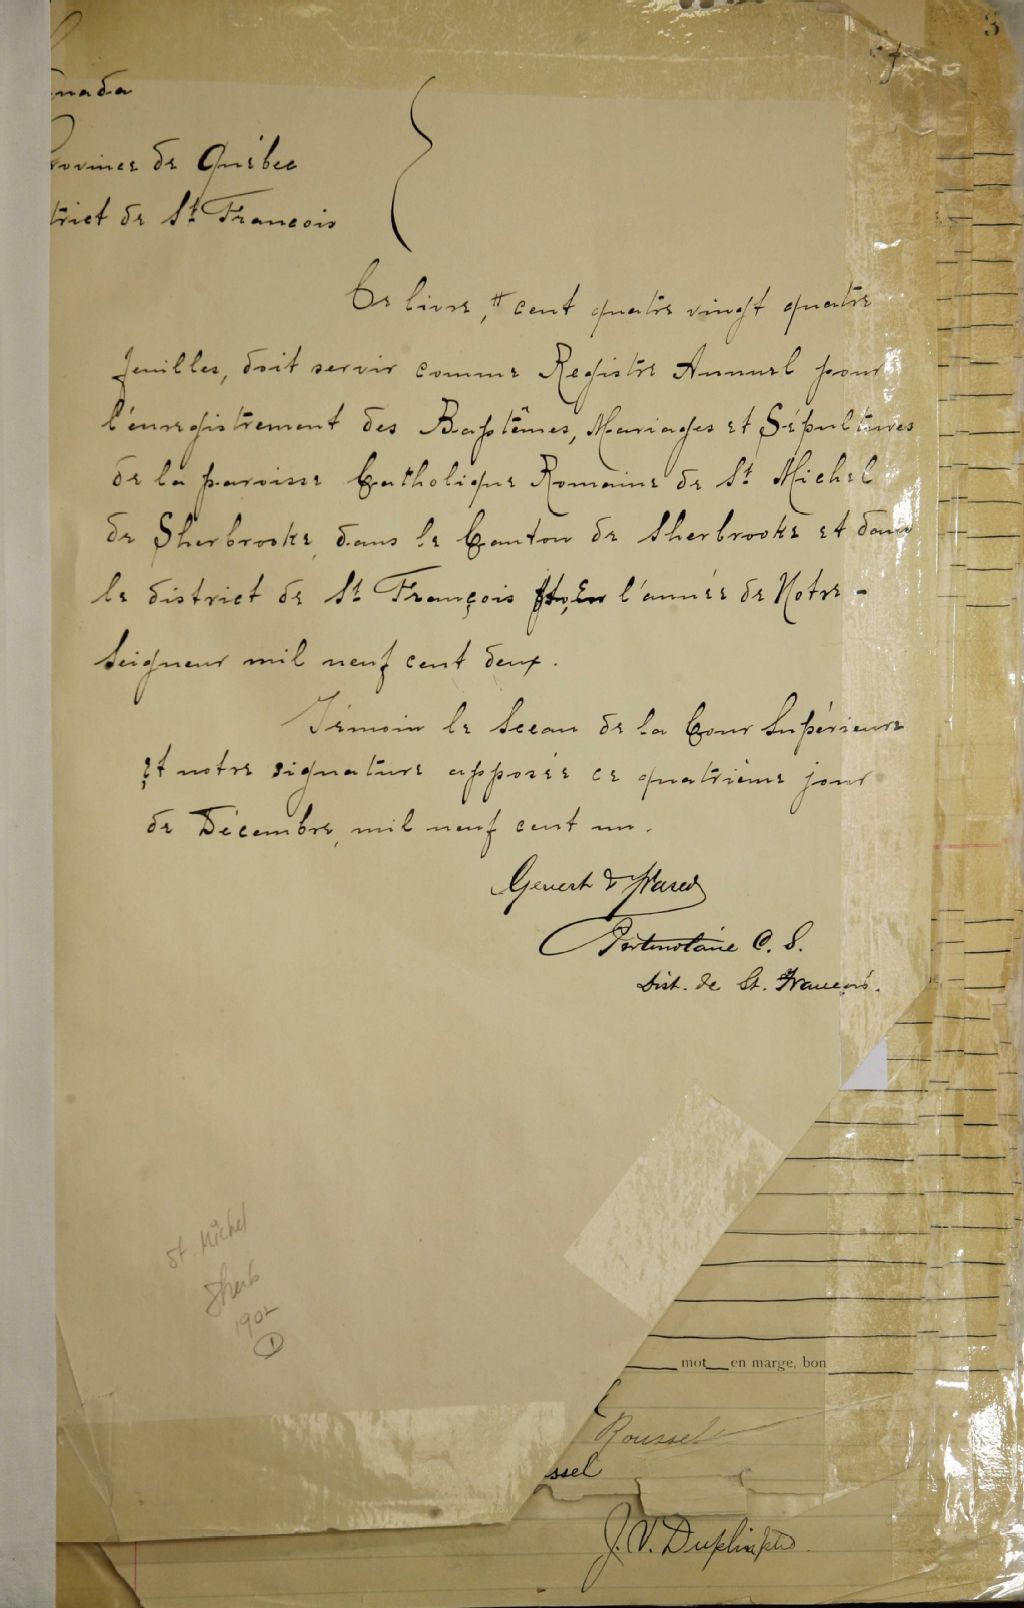 3
nada
rovince de Québec
trict de St Francois
Ce livre, cent quatre vingt quatre
feuilles, doit servir comme Registre Annuel pour
l'enregistrement des Baptêmes, Mariages et Sépultures
de la paroisse Catholique Romaine de St Michel
de Sherbrooke, dans le Canton de Sherbrooke et dans
le district de St François l'année de Notre-
Seigneur mil neuf cent deux.
Témoin le Sceau de la Cour Supérieure
et notre signature apposée ce quatrième jour
de Décembre, mil neuf cent un.
Genest &
C. S.
Dist. de St. Francois.
St Michel
Sherb
1902
1
mot en marge, bon
Roussel
ssel
J. V. Duplin ptre